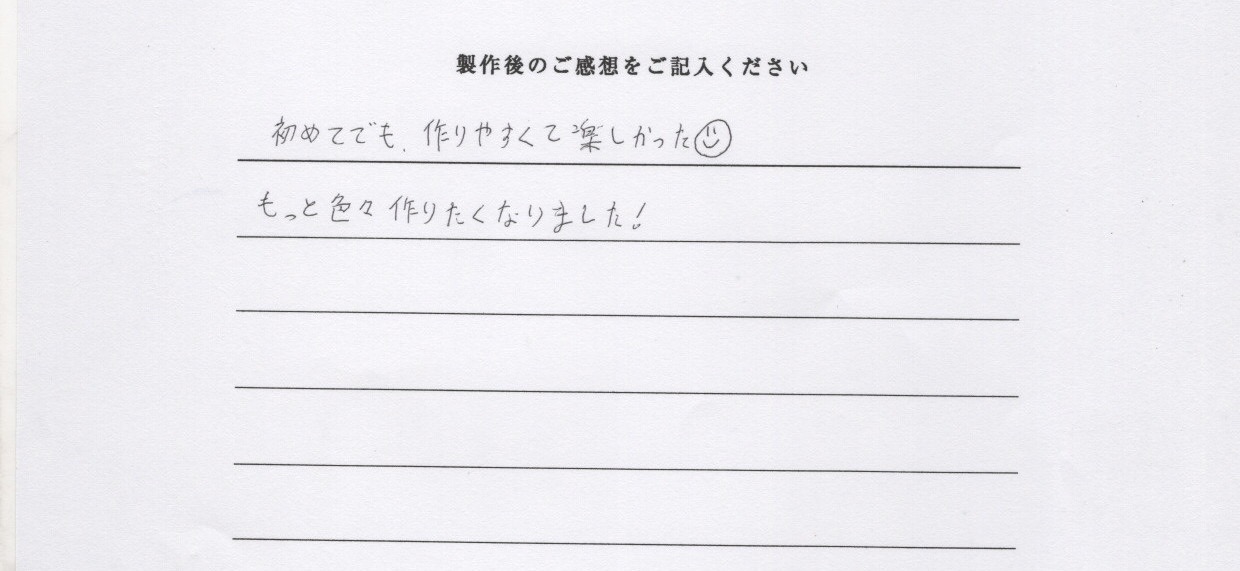 製作後のご感想をご記入ください
初めてでも、作りやすくて楽しかった☺
もっと色々作りたくなりました!